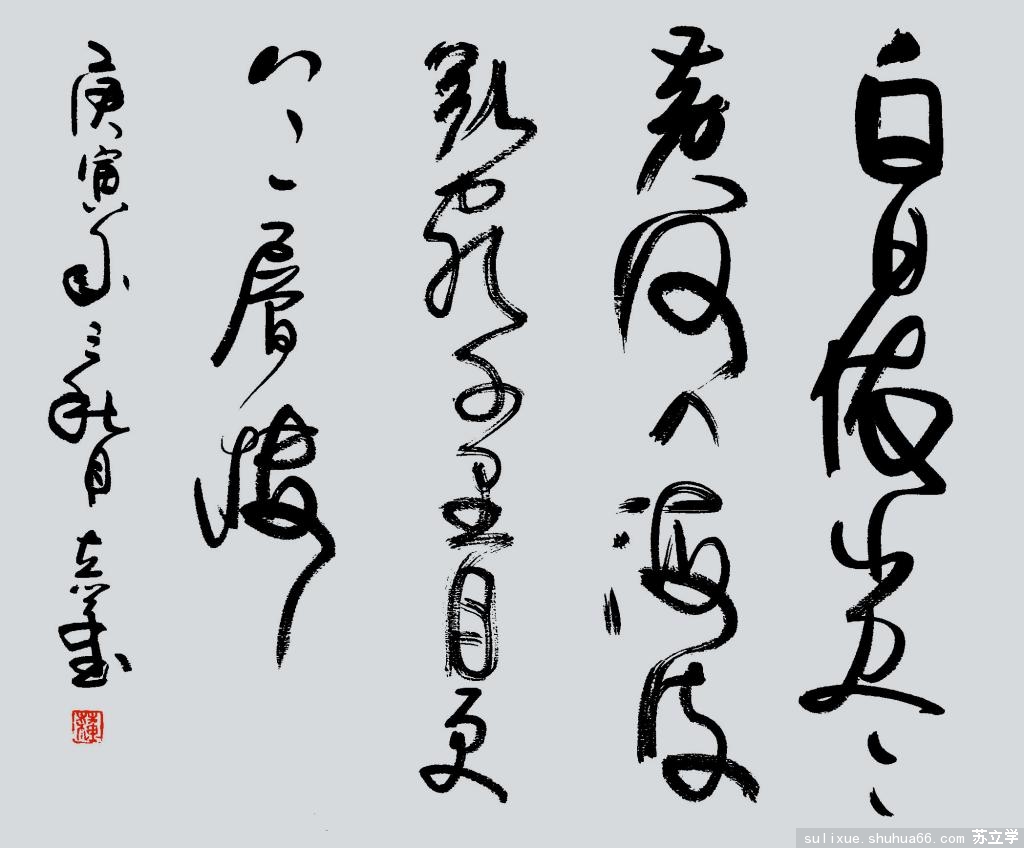 白日依山尽
黄河入海流
欲窮千里目更
上一層楼
庚寅三秋月 立学書
sulixue.shuhua66.com 苏立学